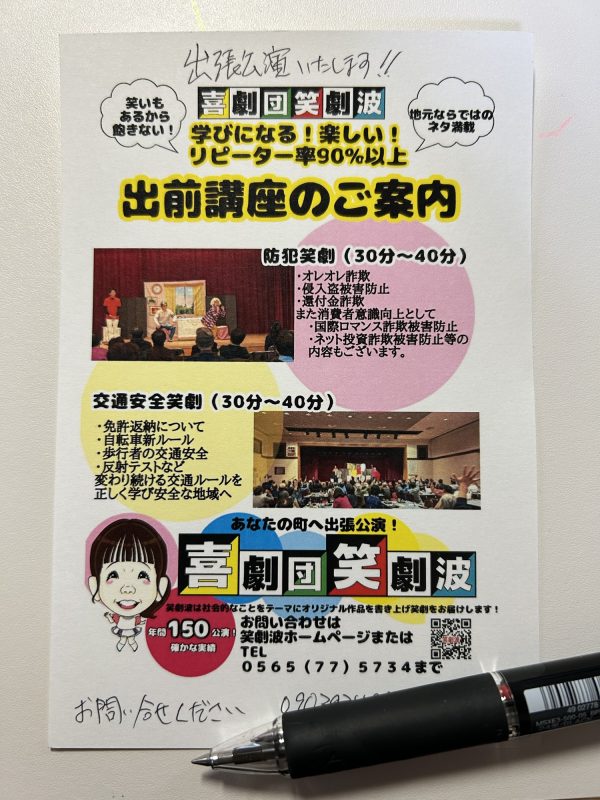 出張公演いたします!!
笑いも
あるから
飽きない！
喜劇団笑劇波
地元ならではの
ネタ満載
学びになる！楽しい！
リピーター率90%以上
出前講座のご案内
防犯笑劇（30分～40分）
・オレオレ詐欺
・侵入盗被害防止
・還付金詐欺
また消費者意識向上として
・国際ロマンス詐欺被害防止
・ネット投資詐欺被害防止等の
内容もございます。
交通安全笑劇（30分～40分）
・免許返納について
・自転車新ルール
・歩行者の交通安全
・反射テストなど
変わり続ける交通ルールを
正しく学び安全な地域へ
あなたの町へ出張公演！
喜劇団笑劇波
笑劇波は社会的なことをテーマにオリジナル作品を書き上げ笑劇をお届けします！
年間150公演！
確かな実績
お問い合わせは
笑劇波ホームページまたは
TEL
0565（77）5734まで
お問い合せください
49 02778